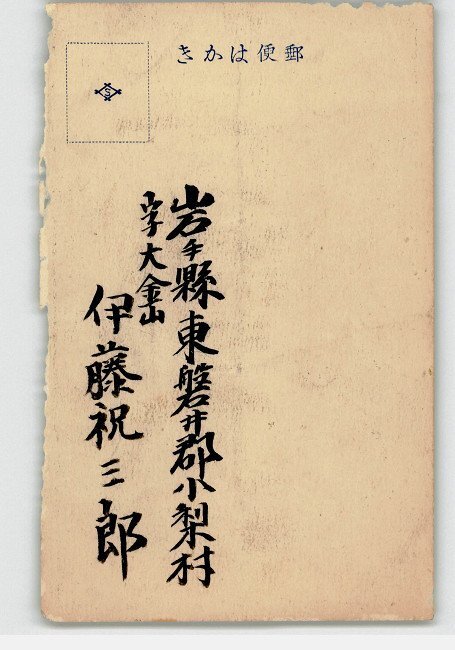 郵便はかき
岩手縣東磐井郡小梨村
字大金山
伊藤祝三郎
S